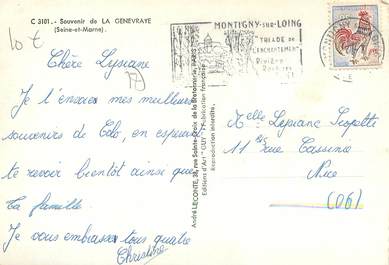 C 3101. - Souvenir de LA GENEVRAYE
(Seine-et-Marne)
10 €
Chère Lysiane
Je t'envoies mes meilleurs
souvenirs de Colo, en espérant
te revoir bientôt ainsi que
ta famille.
Je vous embrasse tous quatre
Christine
André LECONTE, 38, rue Sainte-Croix de la Bretonnerie, PARIS
Editions d'Art "GUY" - Fabrication française
Reproduction interdite.
MONTIGNY-SUR-LOING
TRIADE DE
L'ENCHANTEMENT
Rivière
Melle Lysiane
11 bis rue Cassine
Nice
(06)